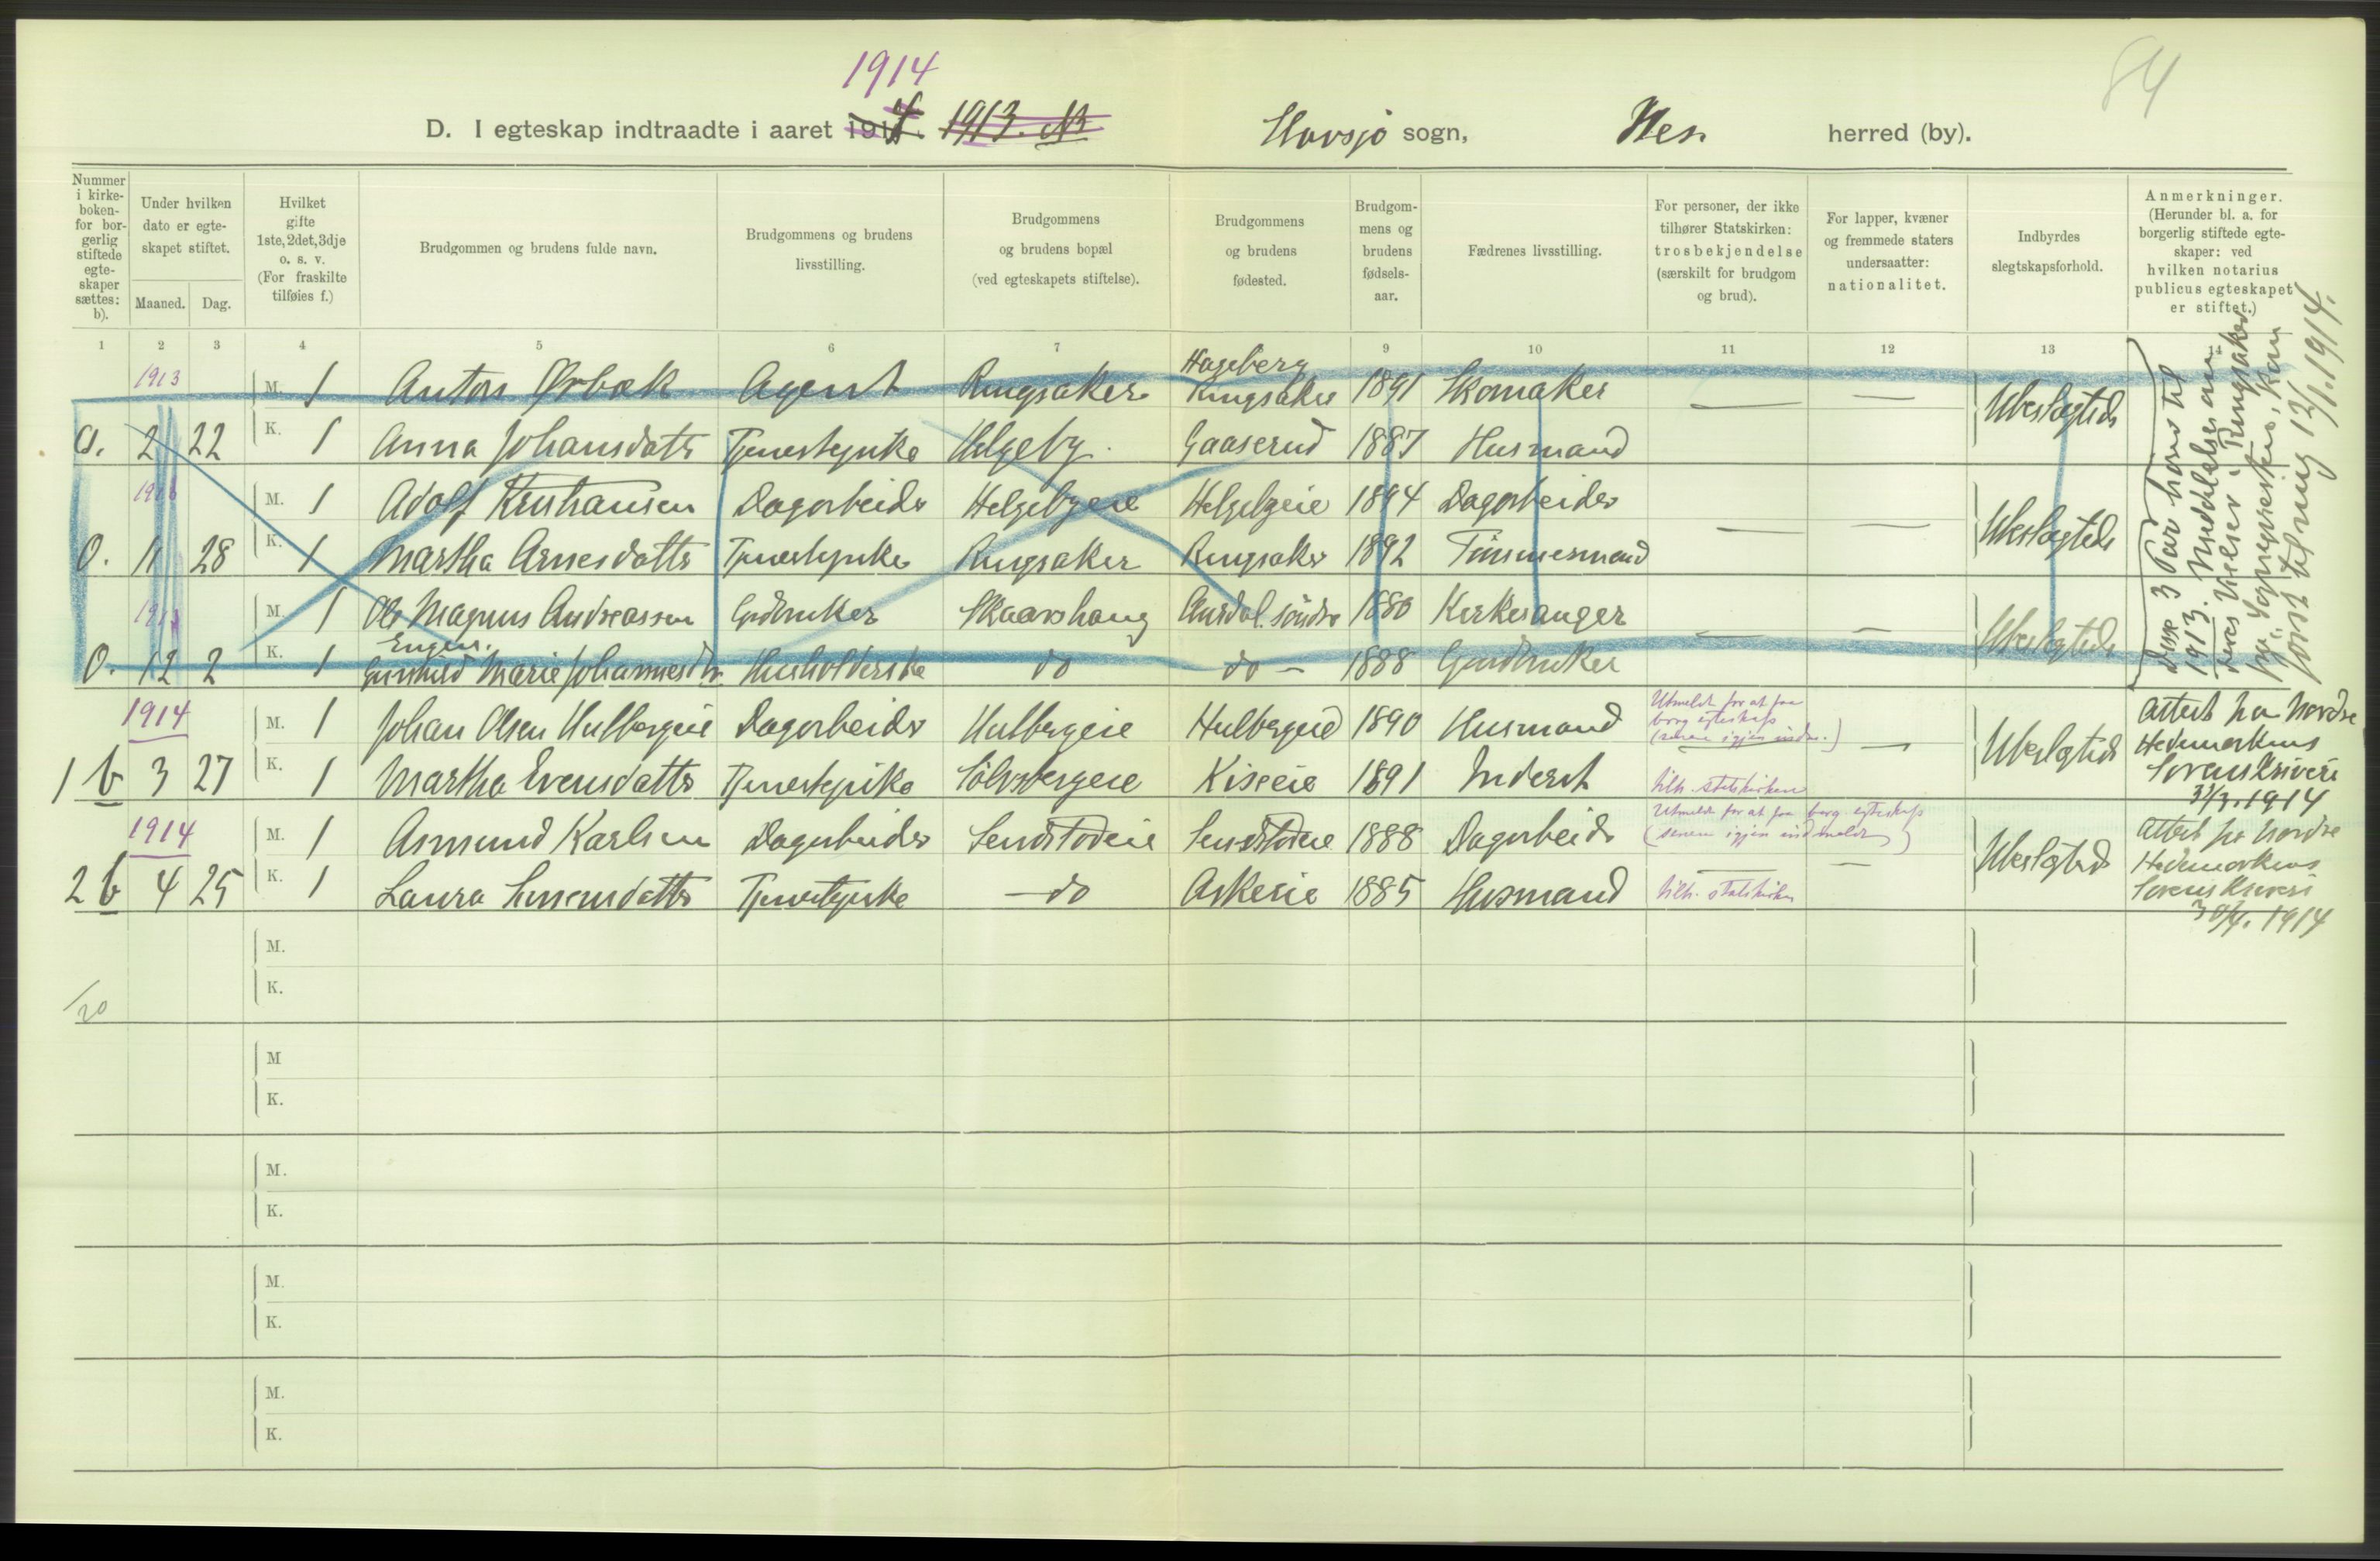 84
1914
D. I egteskap indtraadte i aaret 1914. 1913. NB Stavsjø sogn, Nes. herred (by).
Nummer i kirke-boken- for bor-gerlig stiftede egte-skaper sættes: b).
Under hvilken dato er egte-skapet stiftet.
Maaned. Dag.
Hvilket gifte 1ste, 2det, 3dje o. s. v. (For fraskilte tilføies f.)
Brudgommen og brudens fulde navn.
Brudgommens og brudens livsstilling.
Brudgommens og brudens bopæl (ved egteskapets stiftelse).
Brudgommens og brudens fødested.
Brudgom-mens og brudens fødsels-aar.
Fædrenes livsstilling.
For personer, der ikke tilhører Statskirken: trosbekjendelse (særskilt for brudgom og brud).
For lapper, kvæner og fremmede staters undersaatter: nationalitet.
Indbyrdes slegtskapsforhold.
Anmerkninger. (Herunder bl. a. for borgerlig stiftede egte-skaper: ved hvilken notarius publicus egteskapet er stiftet.)
1 2 3 4 5 6 7 9 10 11 12 13 14
1913 M. 1 Anton Ørbæk Agent Ringsaker Hageberg Ringsaker 1891 Skomaker — — Ubeslegtede
0. 2 22 K. 1 Anna Johansdatter Tjenestepike Helgeby. Gaaserud 1887 Husmand
1913 M. 1 Adolf Kristiansen Dagarbeider Helgebyeie Helgebyeie 1894 Dagarbeider — — Ubeslegtede
0. 11 28 K. 1 Martha Arnesdatter Tjenestepike Ringsaker Ringsaker 1892 Tømmermand
1913 M. 1 Ole Magnus Andreassen Engen. Gardbruker Skaarshaug Aurdal. søndre 1880 Kirkesanger — — Ubeslegtede
0. 12 2 K. 1 Gunhild Marie Johannesdtr. Husholderske do do — 1888 Gardbruker
Disse 3 Par hører til
1913. Meddelelse om
deres vielser i Ringsaker
kom
først til mig 12/1. 1914.
1914 M. 1 Johan Olsen Hulbergeie Dagarbeider Hulbergeie Hulbergeie 1890 Husmand Utmeldt for at faa
borg egteskap
(senere igjen indm.) — Ubeslegtede Attest fra Nordre
1 b 3 27 K. 1 Martha Evensdatter Tjenestepike Sølvsbergeie Kiseeie 1891 Inderst tilh. statskirken
Hedemarkens
Sorenskriveri
1914
1914 M. 1 Asmund Karlsen Dagarbeider Dagarbeider Utmeldt for at faa borg egteskap
(senere igjen indmeldt) — Ubeslegtede Attest fra Nordre
1888
2 b 4 25 K. 1 Laura Simensdatter Tjenestepike — do Askerie 1885 Husmand tilh. statskirken
Hedemarkens
Sorenskriveri
30/4. 1914
M.
K.
1/20
M
K.
M.
K.
M.
K.
M.
K.